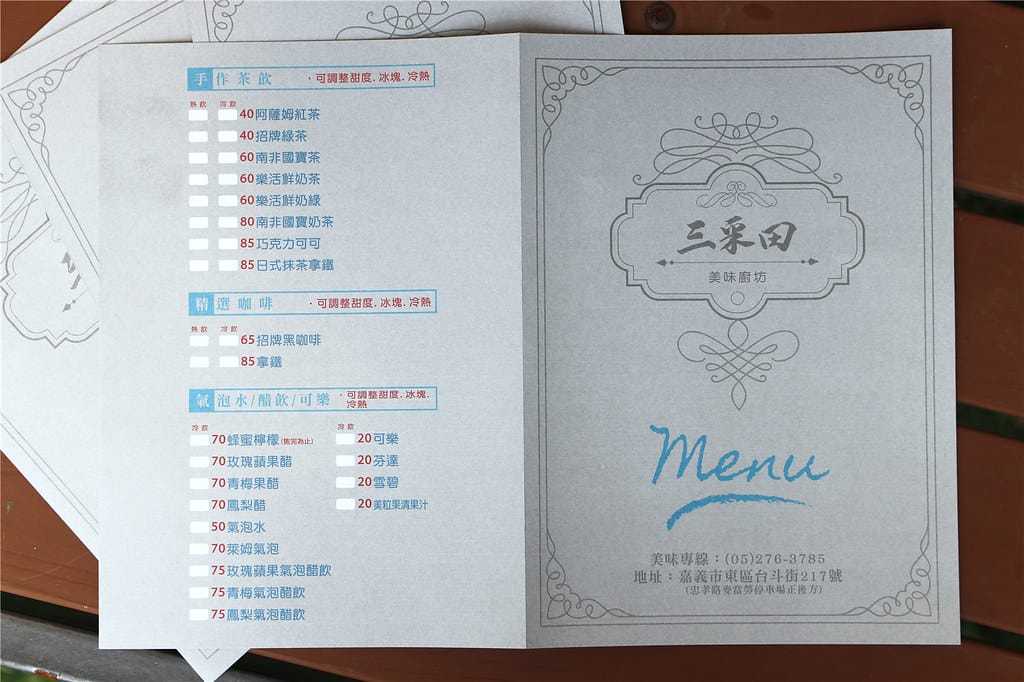 手作茶飲 ・可調整甜度.冰塊.冷熱
熱飲 冷飲
40阿薩姆紅茶
40招牌綠茶
60南非國寶茶
60樂活鮮奶茶
60樂活鮮奶綠
80南非國寶奶茶
85巧克力可可
85日式抹茶拿鐵
精選咖啡 ・可調整甜度.冰塊.冷熱
熱飲 冷飲
65招牌黑咖啡
85拿鐵
氣泡水/醋飲/可樂 ・可調整甜度.冰塊.
冷熱
冷飲
70蜂蜜檸檬(售完為止)
70玫瑰蘋果醋
70青梅果醋
70鳳梨醋
50氣泡水
70萊姆氣泡
75玫瑰蘋果氣泡醋飲
75青梅氣泡醋飲
75鳳梨氣泡醋飲
冷飲
20可樂
20芬達
20雪碧
20美粒果清果汁
三采田
美味廚坊
Menu
美味專線：(05)276-3785
地址：嘉義市東區台斗街217號
(忠孝路麥當勞停車場正後方)